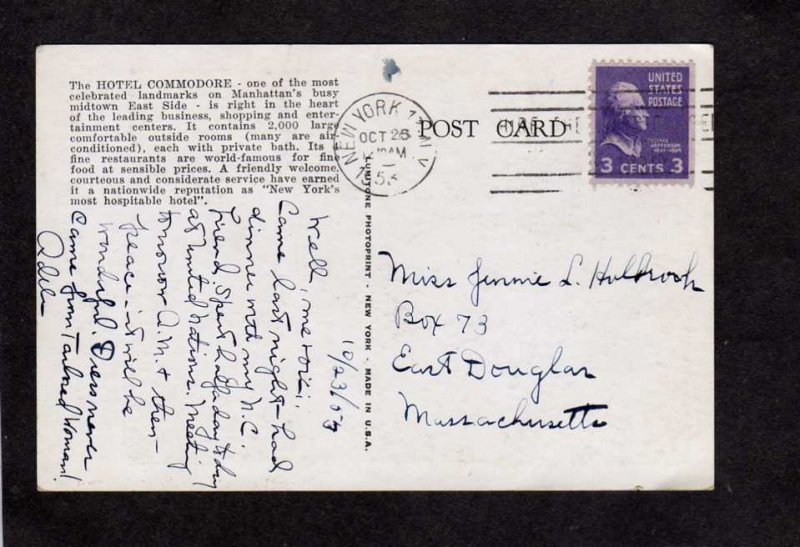 The HOTEL COMMODORE - one of the most
celebrated landmarks on Manhattan's busy
midtown East Side - is right in the heart
of the leading business, shopping and enter-
tainment centers. It contains 2,000 large
comfortable outside rooms (many are air-
conditioned), each with private bath. Its
fine restaurants are world-famous for fine
food at sensible prices. A friendly welcome,
courteous and considerate service have earned
it a nationwide reputation as "New York's
most hospitable hotel".
NEW YORK 1, N.Y.
OCT 26
AM
1953
POST CARD
UNITED
STATES
POSTAGE
THOMAS
JEFFERSON
3 CENTS 3
LUMITONE PHOTOPRINT - NEW YORK - MADE IN U.S.A.
10/23/53
Well, me voici.
Came last night - had
dinner with my N.C.
friend. Spent half a day to-day
at United Nations. Meeting
tomorrow A.M. & then
peace - it will be
wonderful. Dress never
came from Tailored Woman!
Adele
Miss Jennie L. Holbrook
Box 73
East Douglas
Massachusetts